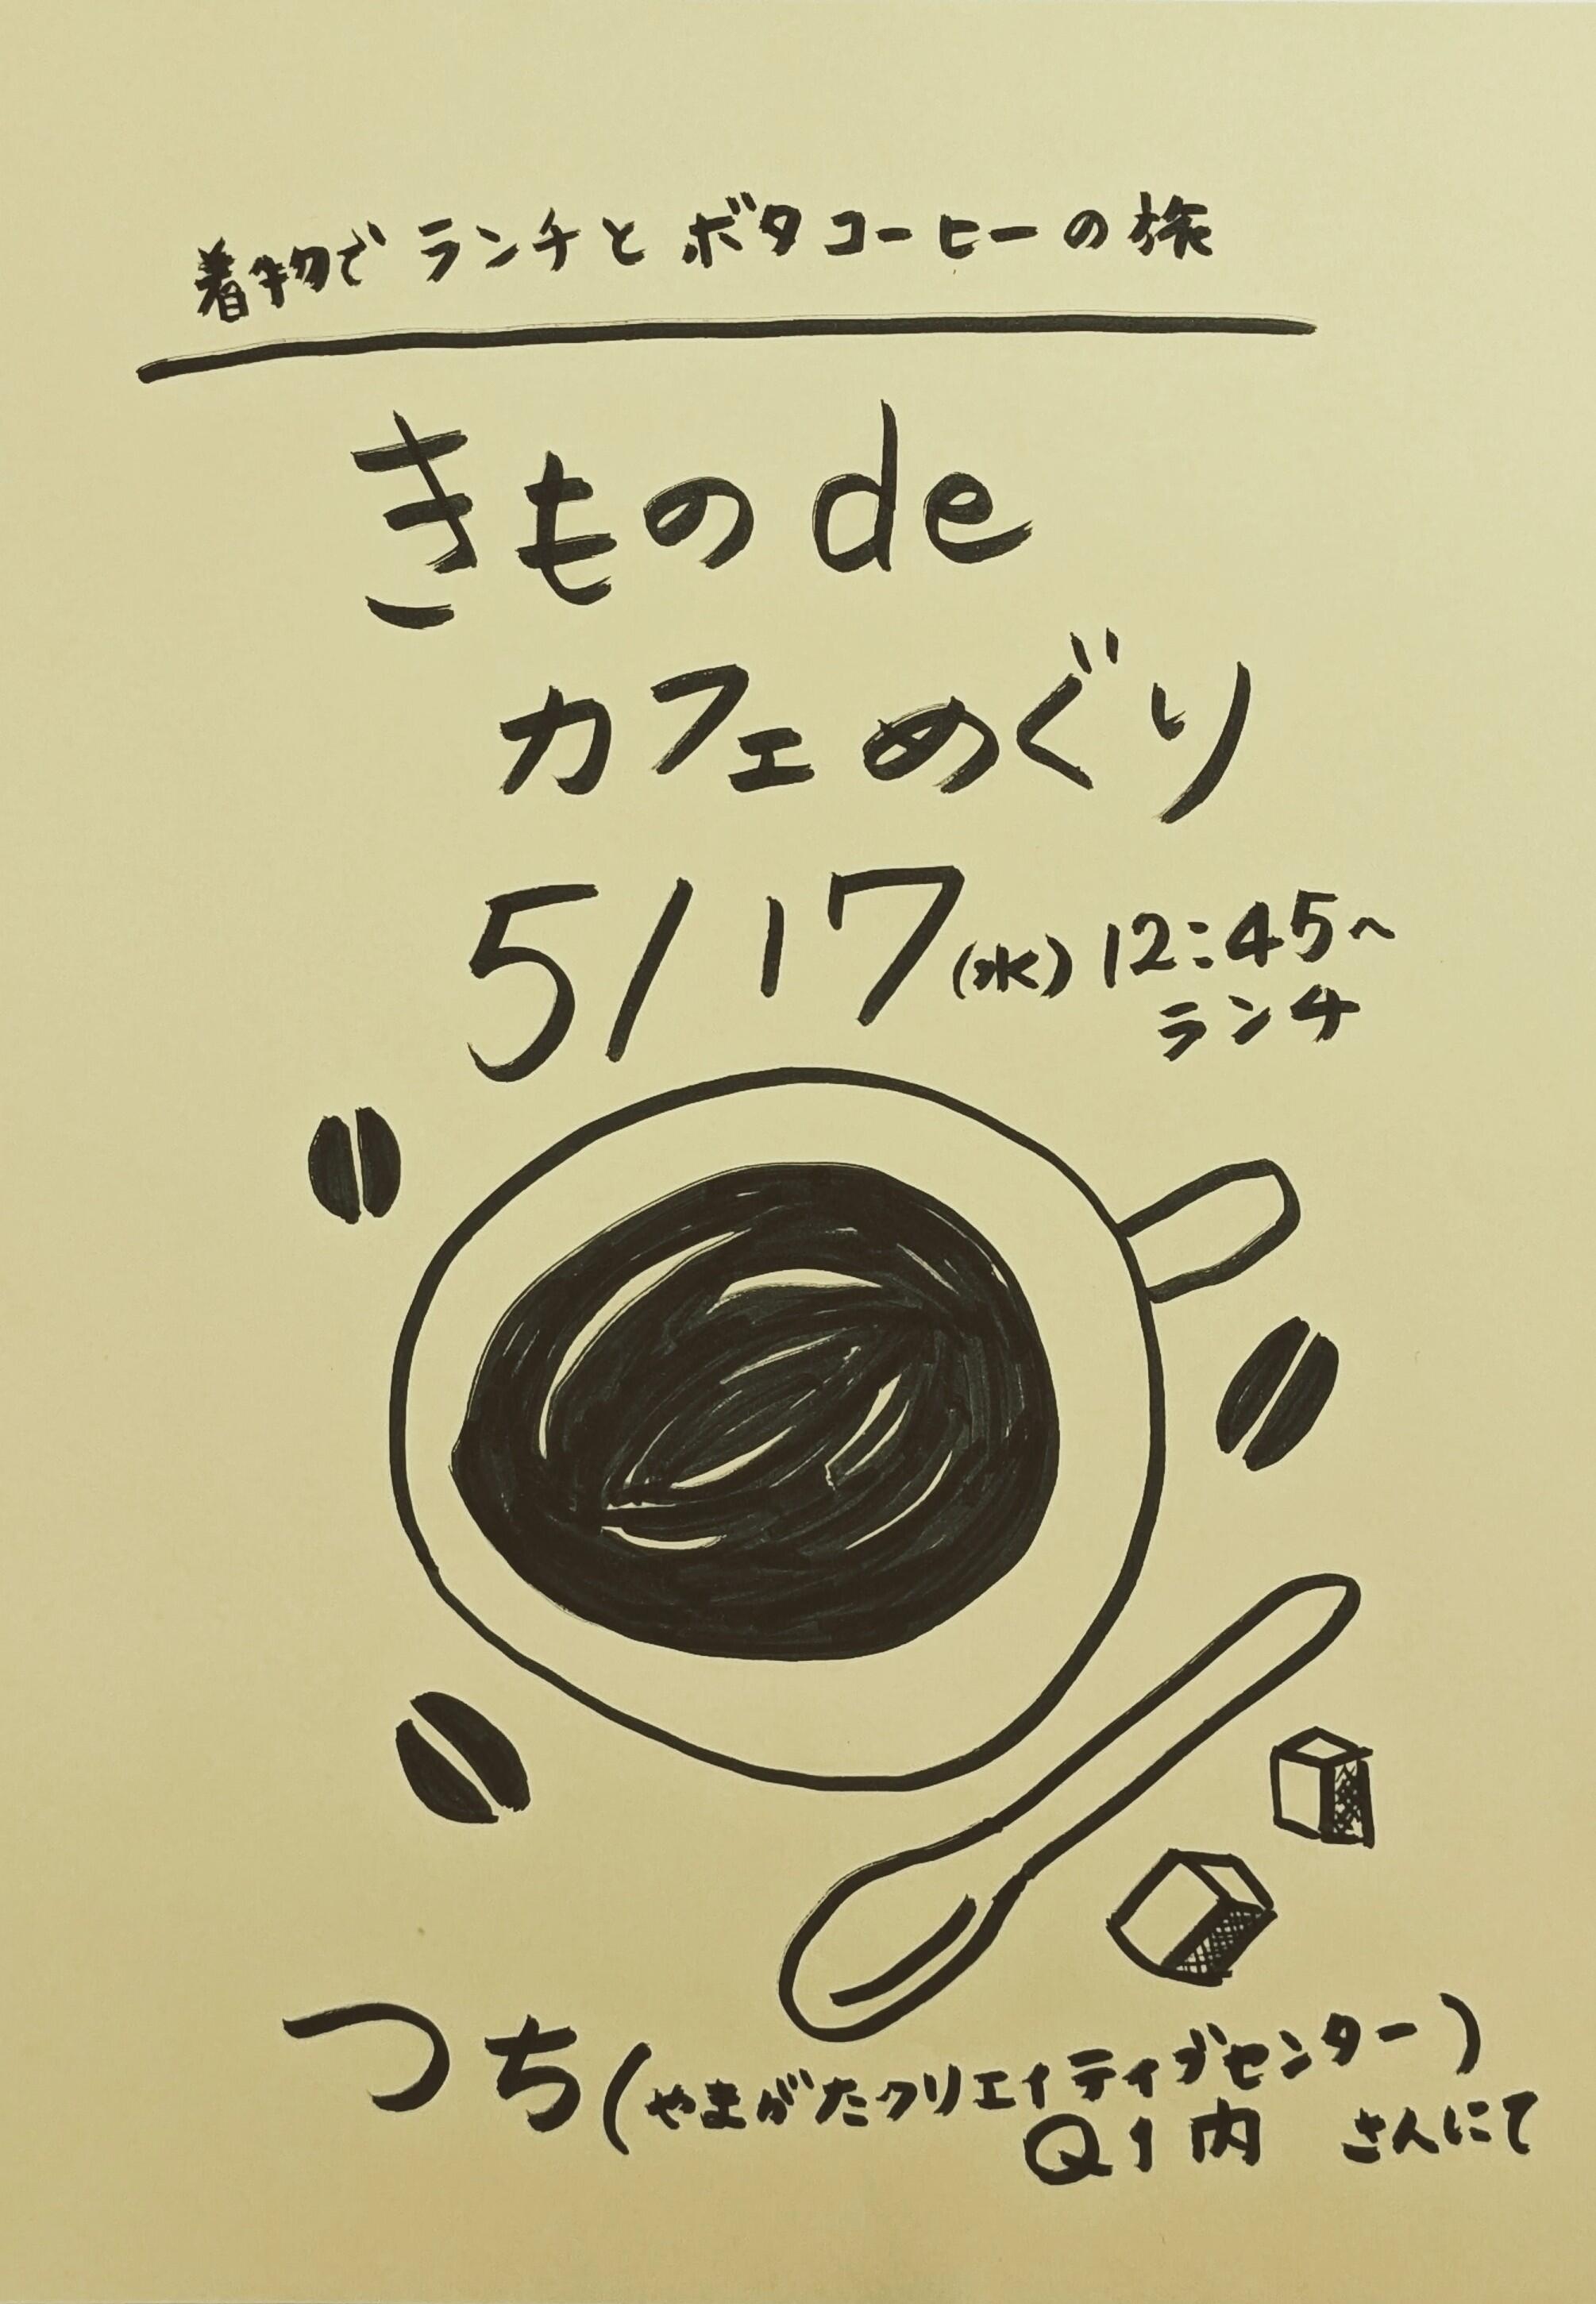 着物でランチとボタコーヒーの旅
きものde
カフェめぐり
5/17(水) 12:45~
ランチ
つち(やまがたクリエイティブセンター)
Q1内 さんにて